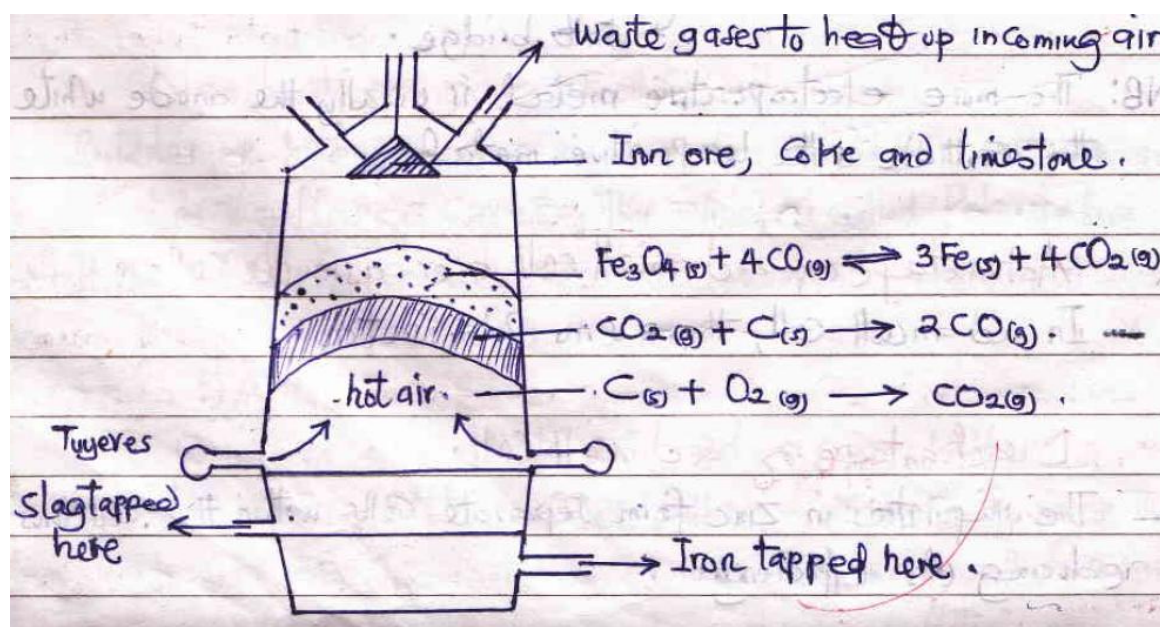 Waste gases to heat up incoming air
Iron ore, Coke and limestone.
Fe₃O₄(s) + 4CO(g) ⇌ 3Fe(s) + 4CO₂(g)
CO₂(g) + C(s) → 2CO(g).
hot air. C(s) + O₂(g) → CO₂(g).
Tuyeres
Slag tapped
here
Iron tapped here.